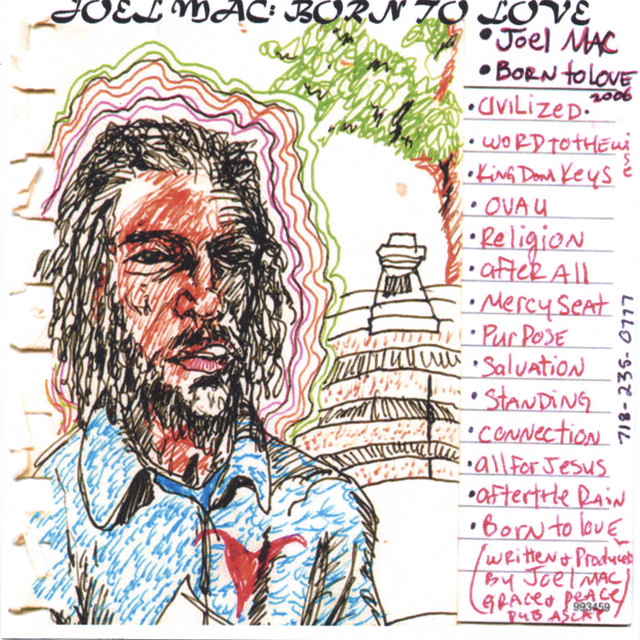 JOEL MAC: BORN TO LOVE
• Joel MAC
• BORN to LOVE
2006
• CiviLiZeD.
• WORD TO THE wise
• KingDom Keys
• OVAU
• Religion
• after All
• Mercy Seat
• PurPose
• Salvation
• STANDING
• connection
• all For Jesus
• after the Rain
• Born to love
(written & Produced
By Joel MAC
GRACE & PEACE
PUB ASCAP)
993459
718-235-0777